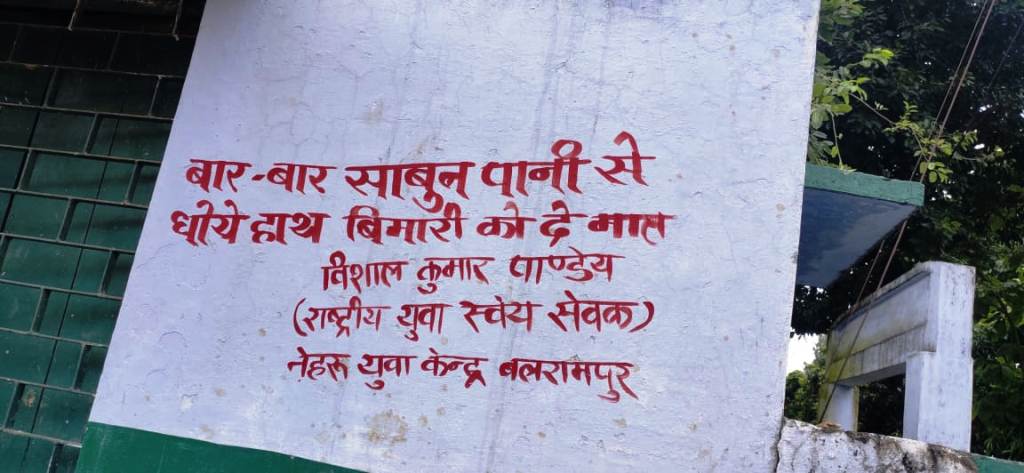 बार-बार साबुन पानी से
धोये हाथ बिमारी को दे मात
विशाल कुमार पाण्डेय
(राष्ट्रीय युवा स्वंय सेवक)
नेहरू युवा केन्द्र बलरामपुर